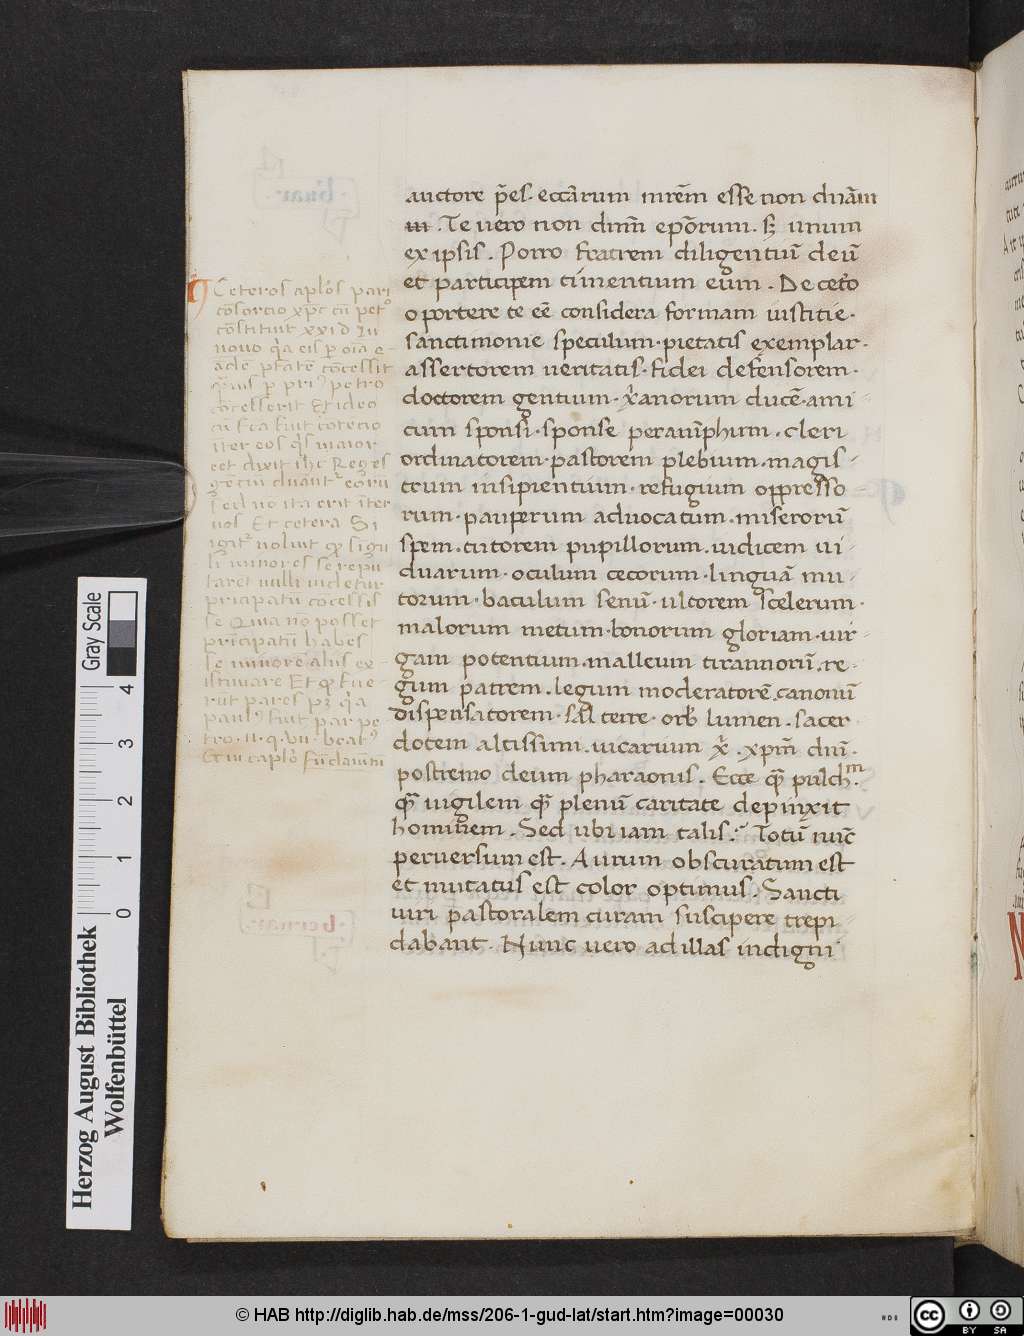 auctore p̄es. eccãrum mrẽm esse non dnãm
. Te uero non dnm̃ epõrum. sꝫ unum
ex ipsis. Porro fratrem diligentiũ deũ
et participem timentium eum. De cet̃o
oportere te eẽ considera formam iustitie.
sanctimonie speculum. pietatis exemplar.
assertorem ueritatis. fidei defensorem.
doctorem gentium. x̃anorum ducẽ. ami
cum sponsi. sponse paranĩphum. cleri
ordinatorem. pastorem plebium. magis
trum insipientium. refugium oppresso
rum. pauperum aduocatum. miserorũ
spem. tutorem pupillorum. iudicem ui
duarum. oculum cecorum. linguã mu
torum. baculum senũ. ultorem scelerum.
malorum metum. bonorum gloriam. uir
gam potentium. malleum tirannorũ. re
gum patrem. legum moderatorẽ. canonũ
dispensatorem. sal terre. orb lumen. sacer
dotem altissimi. uicarium x̃. xpm̃ dnĩ.
postremo deum pharaonis. Ecce q̃ pulch.m
q̃ uigilem q̃ plenũ caritate depinxit
hominem. Sed ubi iam talis. Totũ nũc
peruersum est. Aurum obscuratum est
et mutatus est color optimus. Sancti
uiri pastoralem curam suscipere trepi
dabant. Nunc uero ad illas indigni
Ceteros aplõs pari
cõsortio xpc cũ pet°
cõstituit xxi d In
nouo
concessit
petro
cõcesserit Et ideo
cũ fca fuit cõtentio
ĩter eos q̃s maior
eet dixit ihc Reges
gẽtiũ
Sed nõ ita erit ĩter
uos Et cetera Si
igit̃ noluit
minores se repu
taret nulli uidetur
pricipatũ cõcessis
se Quia nõ posset
prĩcipatũ habes
se minorẽ aliis ex
istimare Et
pares
paul fuit par pe
tro. II. q. VII. beat
Et in
Gray Scale
4
3
2
1
0
Herzog August Bibliothek
Wolfenbüttel
© HAB http://diglib.hab.de/mss/206-1-gud-lat/start.htm?image=00030
cc BY SA